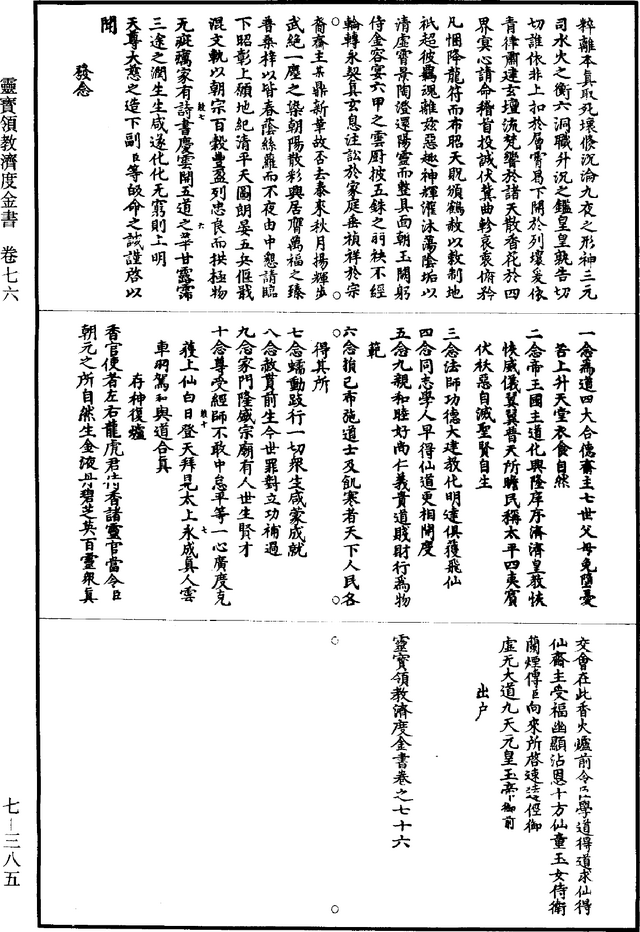 粹離本真取死壞修沉淪九夜之形神三元
司水火之衡六洞職升沉之鑑皇皇孰告切
切誰依非上扣於層霄曷下開於列壤爰依
青律肅建玄壇流梵響於諸天散香花於四
界冥心請命稽首投誠伏冀曲軫哀衷俯矜
凡悃降龍符而布昭天貺頒鶴赦以敷制地
祇超彼羈魂離茲惡趣神輝濯沐蕩陰垢以
清虛霄景陶澄還陽靈而整具面朝玉闕躬
侍金容宴六甲之雲廚披五銖之羽袂不經
輪轉永契真玄息注訟於家庭垂禎祥於宗
裔齋主某鼎新革故否去泰來秋月揚輝步
武絕一塵之染朝陽散彩興居膺萬福之臻
普桑梓以皆春蔭絲蘿而不夜由中懇請臨
下昭彰上願地紀清平天圖朗晏五兵偃戢
混文軌以朝宗百穀豐盈列忠良而拱極物
无疵癘家有詩書慶雲開五道之華甘露霈
三途之潤生生咸遂化化无窮則上明
天尊大慈之造下副臣等皈命之誠謹啓以
聞
發念
一念為道四大合德齋主七世父母免墮憂
苦上升天堂衣食自然
二念帝王國主道化興隆庠序濟濟皇教恢
恢威儀翼翼普天所瞻民稱太平四夷賓
伏袄惡自滅聖賢自生
三念法師功德大建教化明達俱獲飛仙
四念同志學人早得仙道更相開度
五念九親和睦好尚仁義貴道賤財行為物
範
六念損己布施道士及飢寒者天下人民各
得其所
七念蠕動跂行一切衆生咸蒙成就
八念赦貰前生今世罪對立功補過
九念家門隆盛宗廟有人世生賢才
十念尊受經師不敢中怠平等一心廣度克
獲上仙白日登天拜見太上永成真人雲
車羽駕和與道合真
存神復爐
香官使者左右龍虎君侍香諸靈官當令臣
朝元之所自然生金液丹碧芝英百靈衆真
交會在此香火爐前令臣學道得道求仙得
仙齋主受福幽顯沾恩十方仙童玉女侍衛
蘭煙傳臣向來所啓速達徑御
虛元大道九天元皇玉帝御前
出户
靈寶領教濟度金書卷之七十六
靈寶領教濟度金書 卷七六
七—三八五